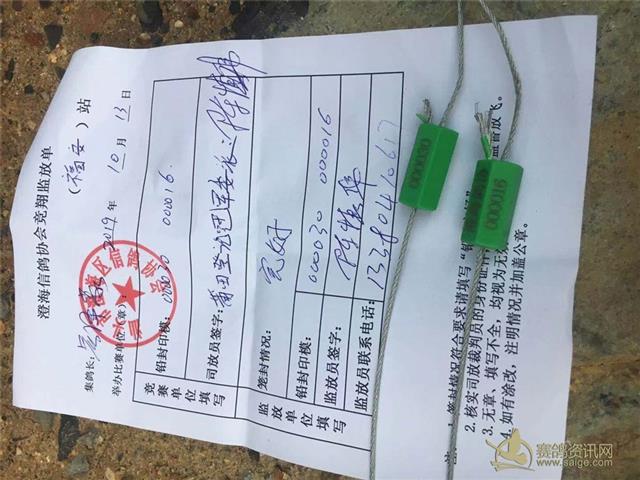 澄海信鸽协会竞翔监放单
(福安)站
2019年10月13日
集鸽长:
举办比赛单位(章):
竞赛单位填写
铅封印模: 000030 000016.
司放员签字:
监放单位填写
笼封情况: 完好
铅封印模: 000030 000016
监放员签字: 陈
监放员联系电话: 13380410617
2. 核实司放裁判员的身份证件
3. 无章、填写不全,均视为无效
如有涂改,注明情况并加盖公章。
监督放飞。
000030
000016
赛鸽资讯网
www.saige.com